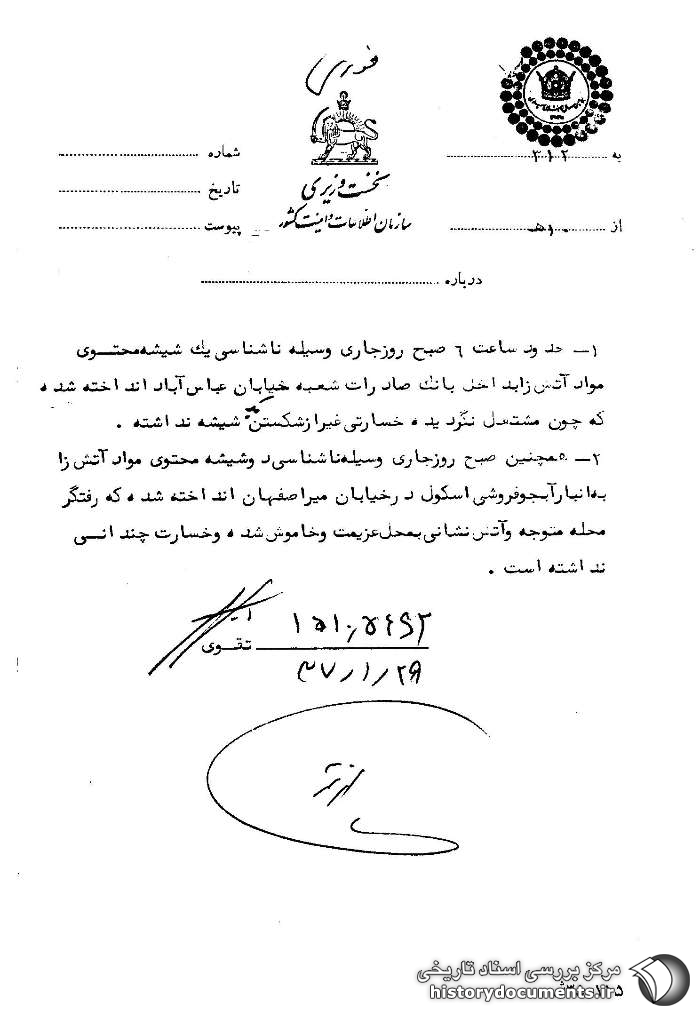 فوری
نخست وزیری
سازمان اطلاعات و امنیت کشور
به ۳۱۲
از ۱۰هـ
شماره
تاریخ
پیوست
درباره
۱- حدود ساعت ۶ صبح روزجاری وسیله ناشناسی یک شیشه محتوی
مواد آتش زابداخل بانک صادرات شعبه خیابان عباس آباد انداخته شده
که چون مشتعل نگردیده خسارتی غیرازشکستن شیشه نداشته .
۲- همچنین صبح روزجاری وسیله ناشناسی دوشیشه محتوی مواد آتش زا
به انبارآبجوفروشی اسکول درخیابان میراصفهان انداخته شده که رفتگر
محله متوجه وآتش نشانی بمحل عزیمت وخاموش شده وخسارت چندانی
نداشته است .
تقوی
۳۷/۱/۲۹
مرکز بررسی اسناد تاریخی
historydocuments.ir